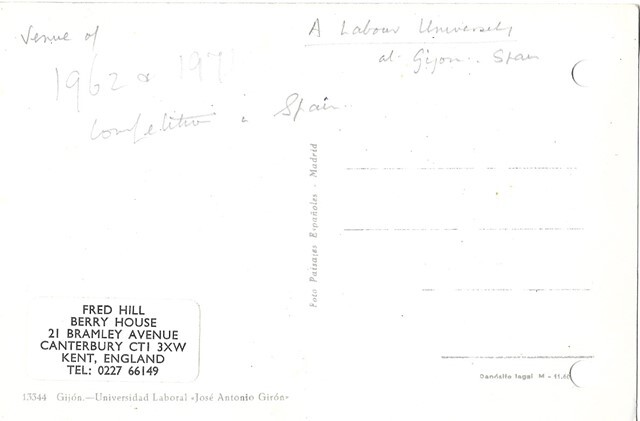 Venue of
1962 & 1971
Competition in Spain.
A Labour University
at Gijon. Spain
Foto Paisajes Españoles - Madrid
FRED HILL
BERRY HOUSE
21 BRAMLEY AVENUE
CANTERBURY CT1 3XW
KENT, ENGLAND
TEL: 0227 66149
Depósito legal M - 11,
13344 Gijón.—Universidad Laboral «José Antonio Girón»